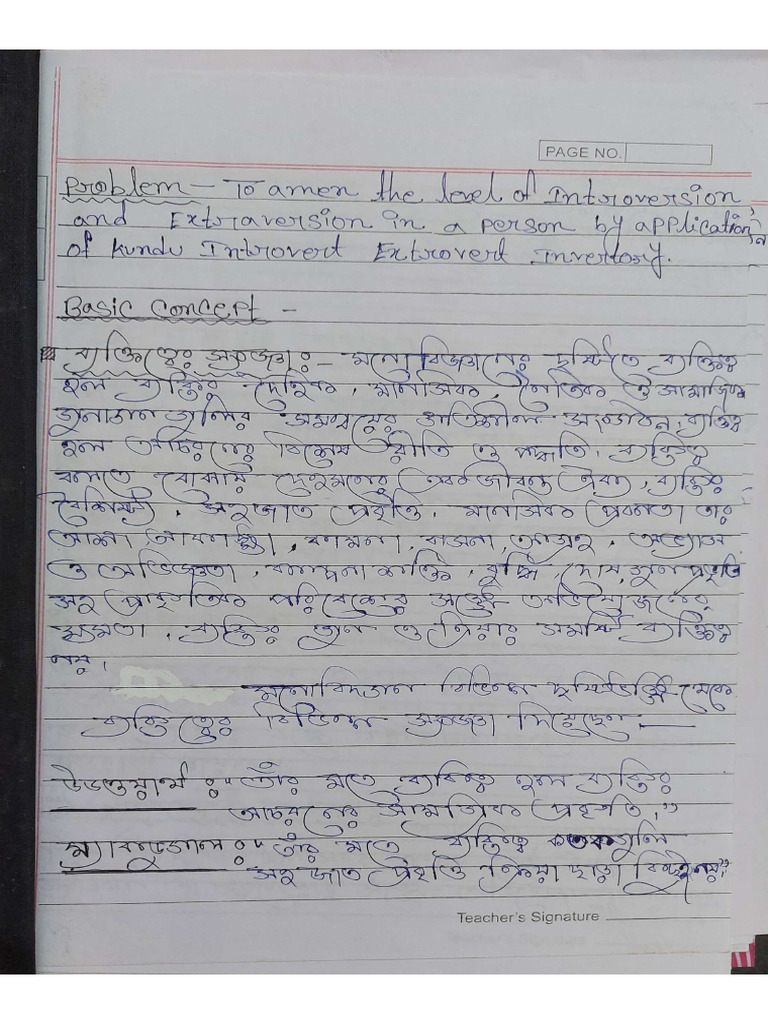 PAGE NO.
Problem - To amen the level of Introversion
and Extraversion in a person by application
of Kundu Introvert Extrovert Invertory.
Basic Concept -
ব্যক্তিত্বের সংজ্ঞা :- মনোবিজ্ঞানের দৃষ্টিতে ব্যক্তিত্ব
হল ব্যক্তির দৈহিক, মানসিক, নৈতিক ও সামাজিক
গুনাগুন গুলির সমন্বয়ের গতিশীল সংগঠন, ব্যক্তিত্ব
হল আচরনের বিশেষ রীতি ও পদ্ধতি, ব্যক্তিত্ব
বলতে বোঝায় দেহমনের এক জীবন্ত ঐক্য, ব্যক্তির
বৈশিষ্ট্য, সহজাত প্রবৃত্তি, মানসিক প্রবনতা তার
আশা আকাঙ্ক্ষা, কামনা, বাসনা, আগ্রহ, অভ্যাস
ও অভিজ্ঞতা, কল্পনা শক্তি, বুদ্ধি, দোষ গুন প্রভৃতি
সহ প্রাকৃতিক পরিবেশের সঙ্গে অভিযোজনের
ক্ষমতা, ব্যক্তির গুন ও ক্রিয়ার সমষ্টি ব্যক্তিত্ব
নয়।
মনোবিদগন বিভিন্ন দৃষ্টিভঙ্গি থেকে
ব্যক্তিত্বের বিভিন্ন সংজ্ঞা দিয়েছেন —
উডওয়ার্থ : "তাঁর মতে ব্যক্তিত্ব হল ব্যক্তির
আচরনের সামগ্রিক প্রকৃতি,"
ম্যাকডুগাল : "তাঁর মতে ব্যক্তিত্ব কতকগুলি
সহজাত প্রবৃত্তি ক্রিয়া ছাড়া কিছুই নয়"
Teacher's Signature